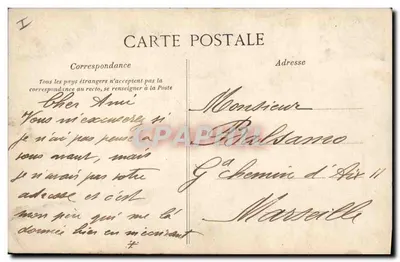 I
CARTE POSTALE
Correspondance
Adresse
Tous les pays étrangers n'acceptent pas la
correspondance au recto, se renseigner à la Poste
Cher Ami
Vous m'excuserez si
je n'ai pas pensé à
vous avant, mais
je n'avais pas votre
adresse et c'est
mon père qui me l'a
donnée bien en
Monsieur
Balsamo
Gd chemin d'Aix 11
Marseille
CPARAMA